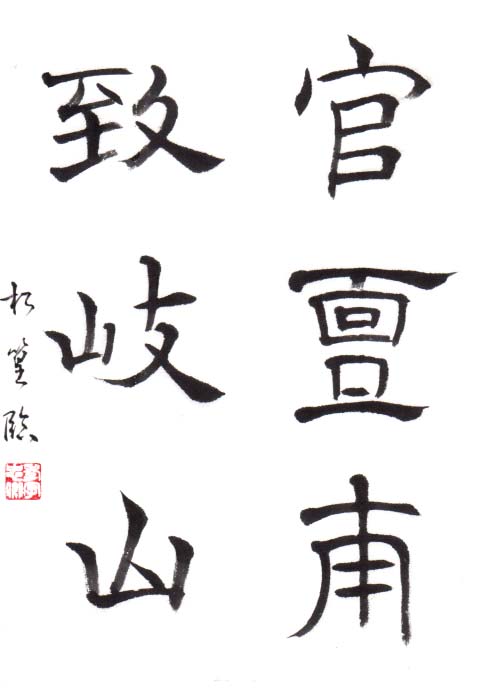 官亶甫
致岐山
松篁臨